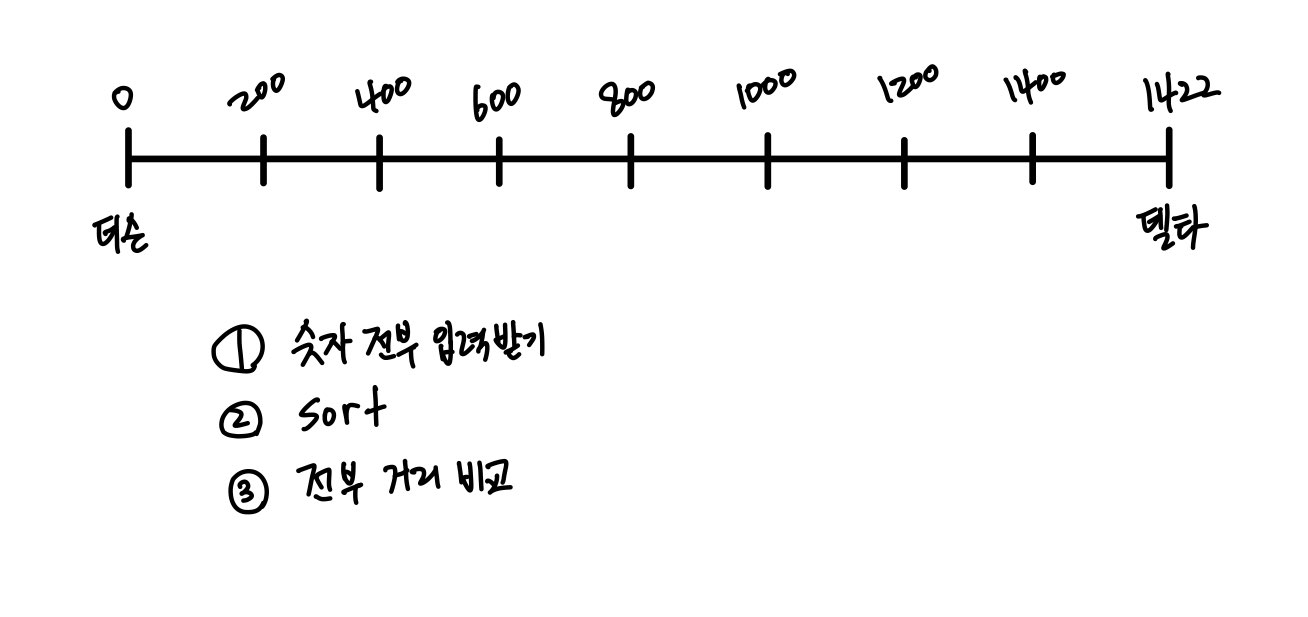 0 200 400 600 800 1000 1200 1400 1422
더슨 델타
① 숫자 전부 입력받기
② sort
③ 전부 거리 비교